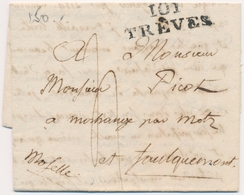 150.
101
TRÈVES
A Monsieur
Monsieur Picot
a morhange par Metz
Moselle et faulquemont